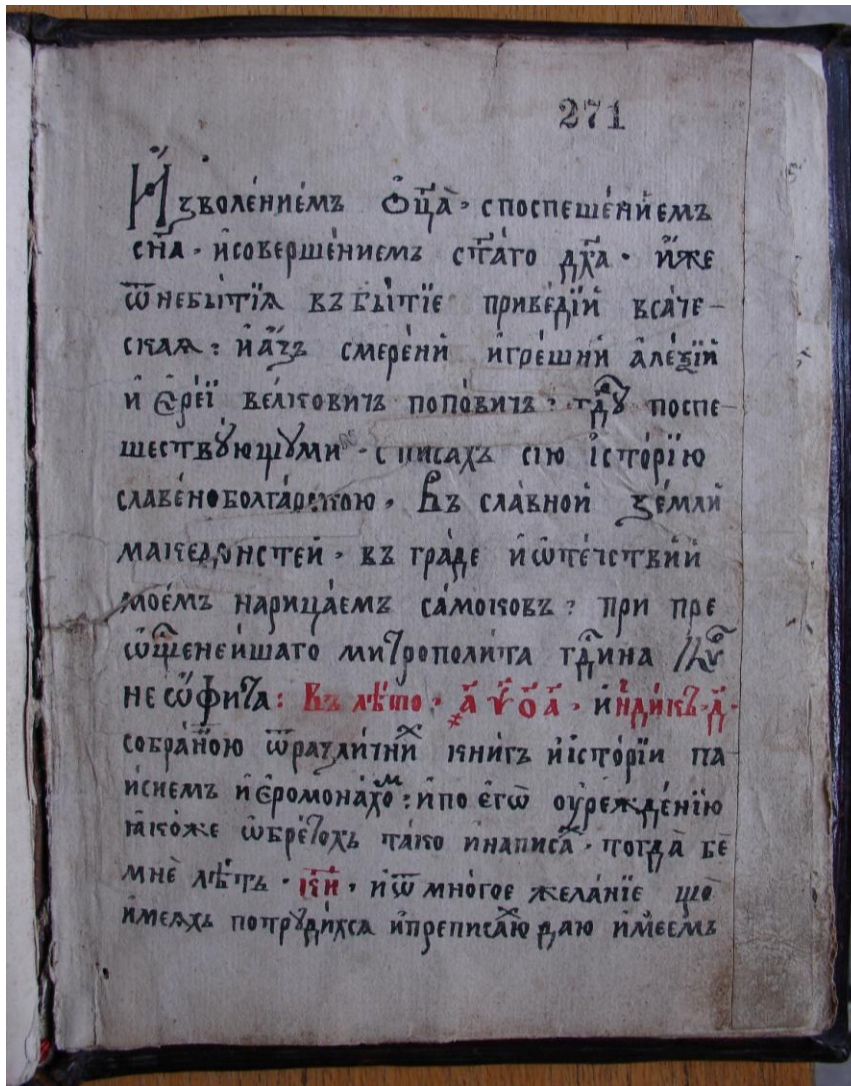 271
И҆зволе́нїемъ Ѻ҆ц҃а̀ · споспеше́нїемъ
сн҃а · и҆совершенїемъ ст҃а́го дх҃а · и҆́же
ѿнебытїѧ въбытїе приве́дїй всѧ́че–
скаѧ : и҆а҆́зъ смере́ни и҆гре́шнй а҆ле́ѯїй
и҆ Е҆ре́ї ве́лковичъ попо́вичъ : гдⷭ҇ꙋ поспе–
шествꙋ́ющꙋми · списахъ сїю і҆сто́рїю
славе́ноболга́рскою · Въ сла́вной зе́мли
македонстей · въ гра́де и҆ѡте́чствїй
мое́мъ нарица́емъ са́моковъ : при пре
ѡ҆сщ҃е́не́йшаго митрополита гдⷭ҇ина
не ѻ҆фита : Въ лѣто · ҂а҃ ѱ҃ о҃ а҃ · и҆ндикъ · д҃ ·
собра́нною ѿразли́чнйхъ кни́гъ и҆и҆сто́рїи па
и́сиемъ и҆е҆ромона́хомъ : и҆по е҆гѡ̀ ᲂу҆режде́нїю
ꙗ҆́коже ѡ҆брето́хъ та́ко и҆написа́хъ · тогда̀ бѐ
мнѐ лѣ́тъ · к҃и · и҆ѿ многое жела́нїе що̀
и҆меѧхъ потрꙋди́хсѧ и҆преписа́хю даю и҆́меемъ